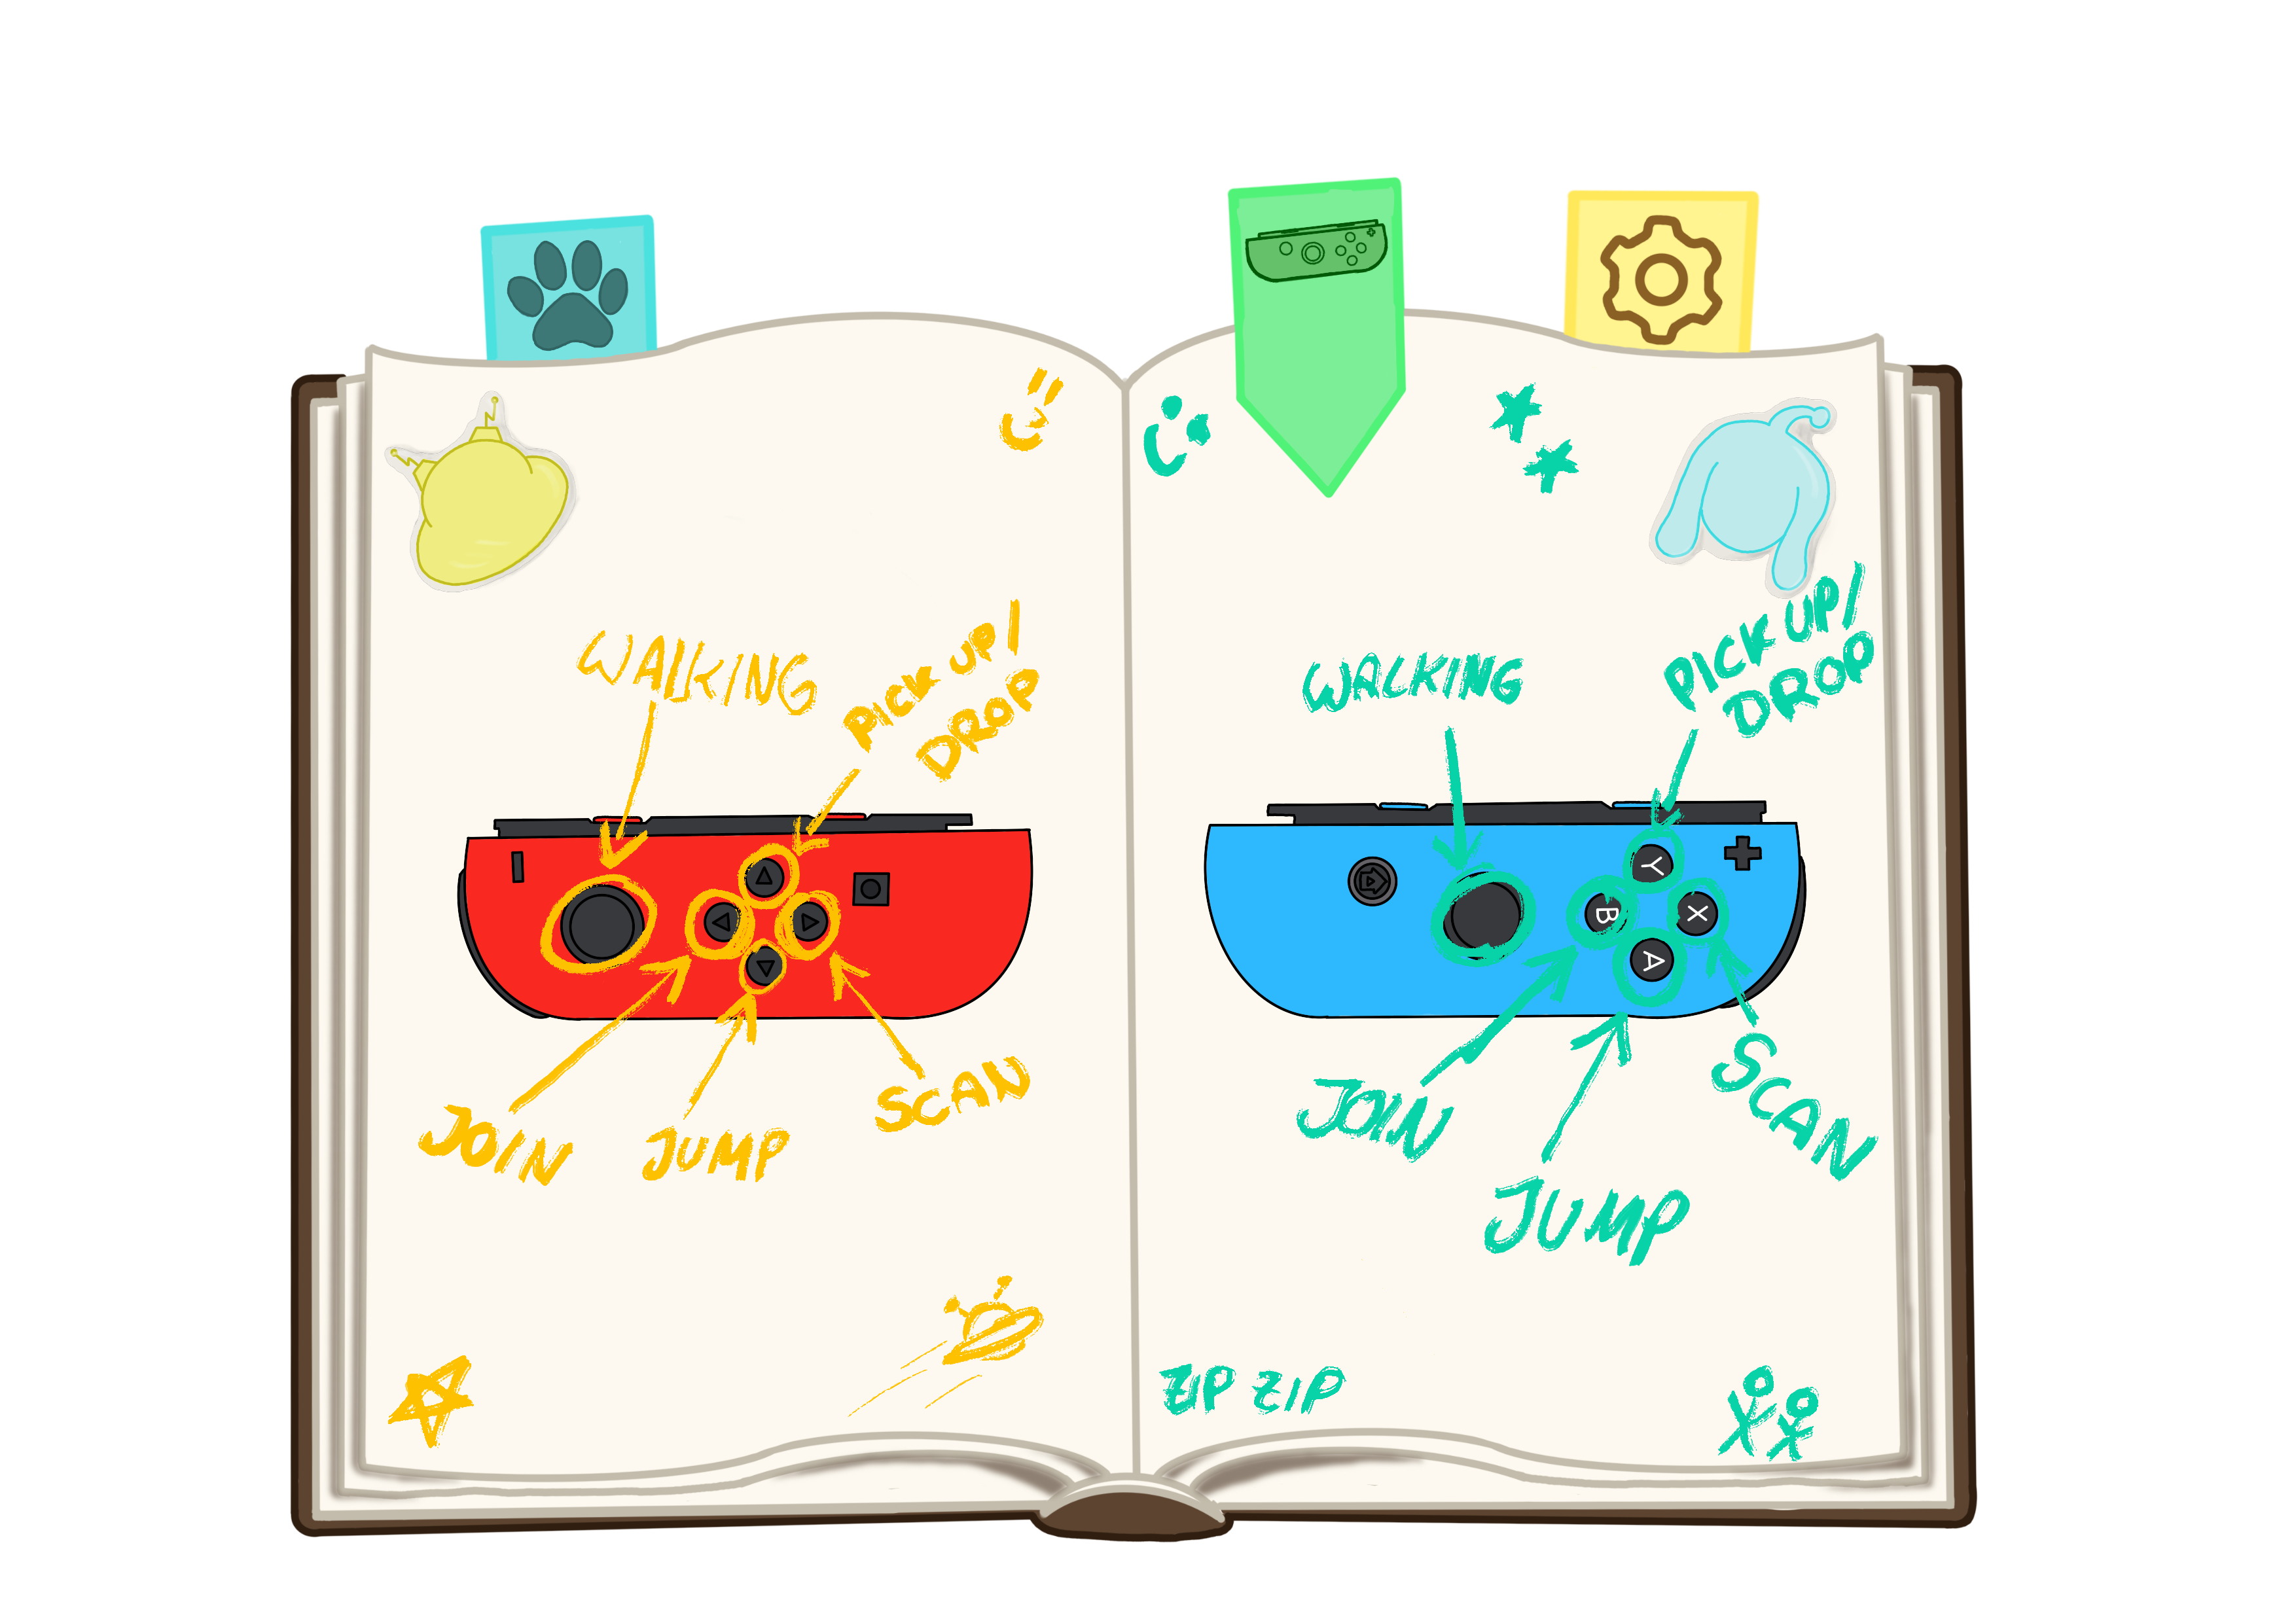 WALKING
PICK UP/
DROP
JOIN
JUMP
SCAN
WALKING
PICK UP/
DROP
Y
B
X
A
JOIN
JUMP
SCAN
ZIP ZIP